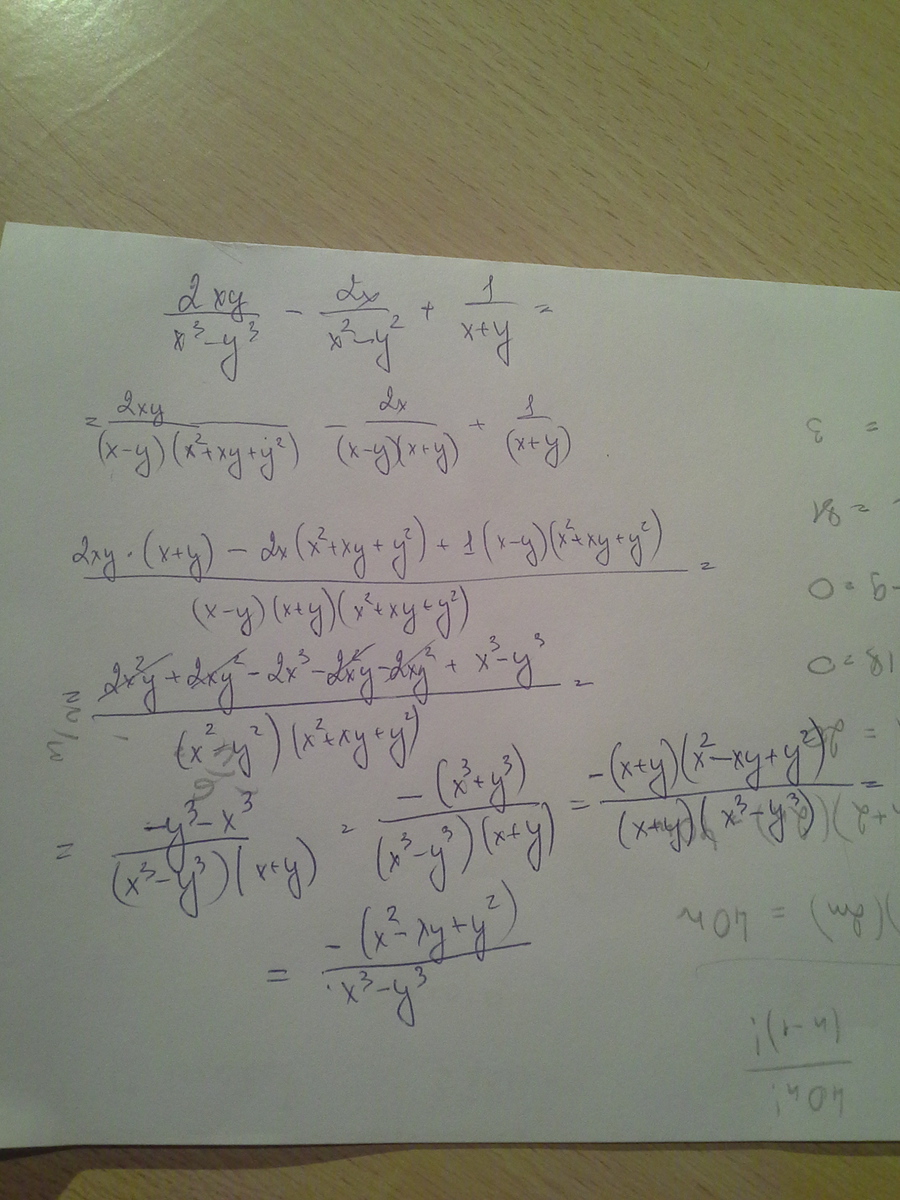 2xy/(x³-y³) - 2x/(x²-y²) + 1/(x+y) =
= 2xy/((x-y)(x²+xy+y²)) - 2x/((x-y)(x+y)) + 1/(x+y)
(2xy·(x+y) - 2x(x²+xy+y²) + 1(x-y)(x²+xy+y²))/((x-y)(x+y)(x²+xy+y²)) =
(2x²y + 2xy² - 2x³ - 2x²y - 2xy² + x³-y³)/((x²-y²)(x²+xy+y²)) =
= (-y³-x³)/((x³-y³)(x+y)) = -(x³+y³)/((x³-y³)(x+y)) = -(x+y)(x²-xy+y²)/((x+y)(x³-y³)) =
= -(x²-xy+y²)/(x³-y³)
= 3
= 81
-9=0
18=0
)(2n) = 40n
40n!/(n-1)!